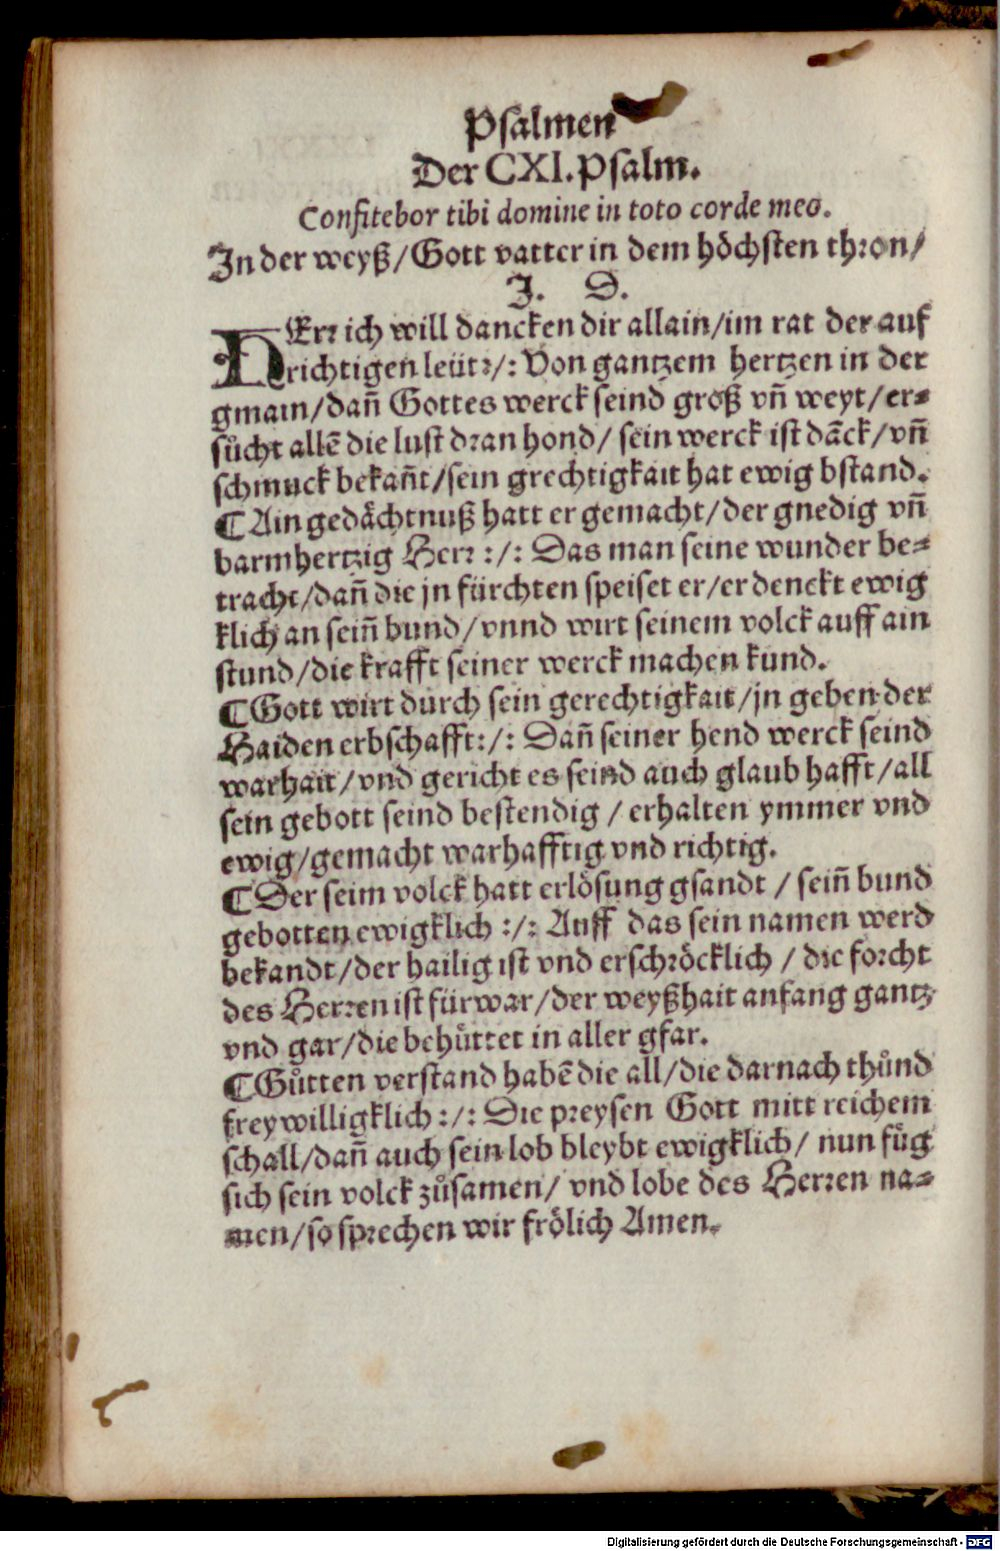 Psalmen
Der CXI. Psalm.
Confitebor tibi domine in toto corde meo.
In der weyß/Gott vatter in dem höchsten thron/
J. D.
HErr ich will dancken dir allain/im rat der auf
richtigen leüt:/: Von gantzem hertzen in der
gmain/dañ Gottes werck seind groß vñ weyt/er⸗
sůcht allẽ die lust dran hond/ sein werck ist dãck/vñ
schmuck bekañt/sein grechtigkait hat ewig bstand.
¶ Ain gedächtnuß hatt er gemacht/der gnedig vñ
barmhertzig Herr :/: Das man seine wunder be⸗
tracht/dañ die jn fürchten speiset er/er denckt ewig
klich an seiñ bund/vnnd wirt seinem volck auff ain
stund/die krafft seiner werck machen kund.
¶ Gott wirt durch sein gerechtigkait/jn geben der
Haiden erbschafft:/: Dañ seiner hend werck seind
warhait/vnd gericht es seind auch glaub hafft/all
sein gebott seind bestendig / erhalten ymmer vnd
ewig/gemacht warhafftig vnd richtig.
¶ Der seim volck hatt erlösung gsandt / seiñ bund
gebotten ewigklich :/: Auff das sein namen werd
bekandt/der hailig ist vnd erschröcklich / die forcht
des Herren ist fürwar/der weyßhait anfang gantz
vnd gar/die behüttet in aller gfar.
¶ Gůtten verstand habẽ die all/die darnach thůnd
freywilligklich :/: Die preysen Gott mitt reichem
schall/dañ auch sein lob bleybt ewigklich/ nun fůg
sich sein volck zůsamen/ vnd lobe des Herren na⸗
men/so sprechen wir frölich Amen.
Digitalisierung gefördert durch die Deutsche Forschungsgemeinschaft - DFG